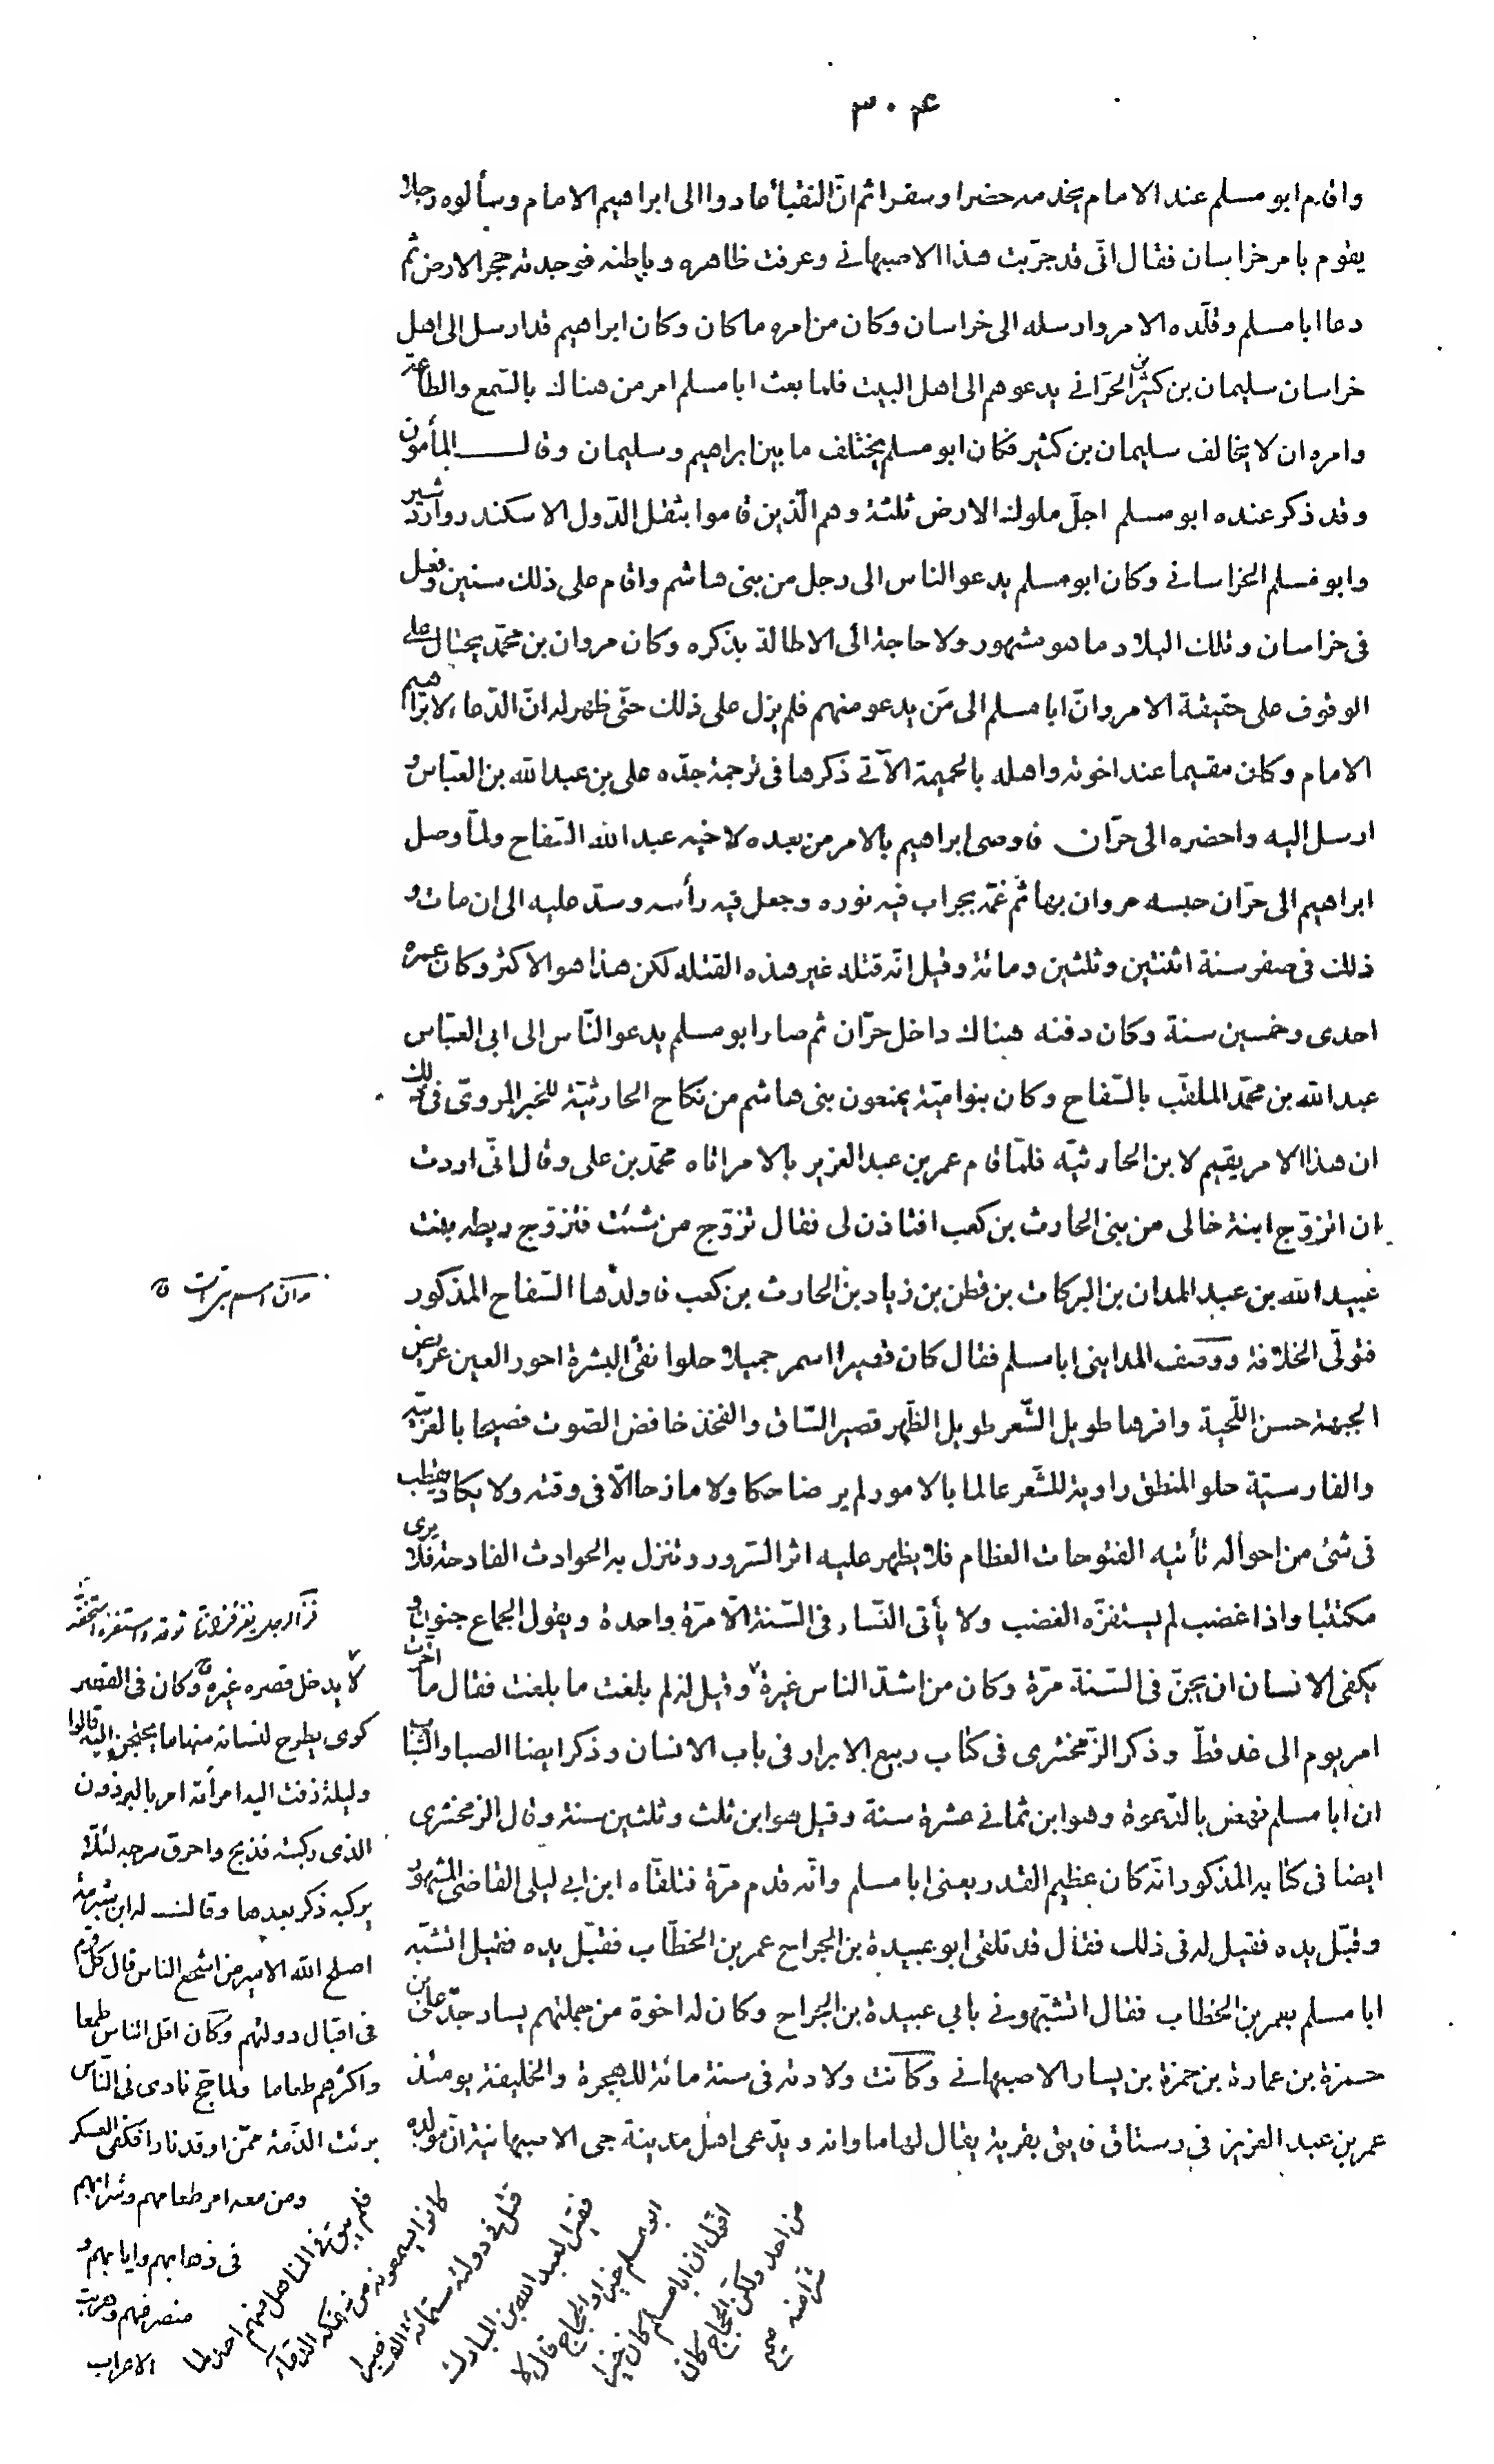 ٣٠۴
واقام ابو مسلم عند الامام يخدمه حضرا وسفرا ثم انّ النقبأ عادوا الى ابراهيم الامام وسألوه رجلا
يقوم بامر خراسان فقال انّى قد جرّبت هذا الاصبهانے وعرفت ظاهره وباطنه فوجدته حجر الارض ثم
دعا ابا مسلم وقلّده الامر وارسله الى خراسان وكان من امره ما كان وكان ابراهيم قد ارسل الى اهل
خراسان سليمان بن كثير الحرّانے يدعوهم الى اهل البيت فلما بعث ابا مسلم امر من هناك بالسّمع والطاعة
وامره ان لا يخالف سليمان بن كثير فكان ابو مسلم يختلف ما بين ابراهيم وسليمان وقال المأمون
وقد ذكر عنده ابو مسلم اجلّ ملوك الارض ثلثة وهم الّذين قاموا بثقل الدّول الاسكندر واردشير
وابو مسلم الخراسانے وكان ابو مسلم يدعو الناس الى رجل من بنى هاشم واقام على ذلك سنين وفعل
فى خراسان وتلك البلاد ما هو مشهور ولا حاجة الى الاطالة بذكره وكان مروان بن محمّد يحتال على
الوقوف على حقيقة الامر وانّ ابا مسلم الى مَن يدعو منهم فلم يزل على ذلك حتّى ظهر له انّ الدّعاء لابراهيم
الامام وكان مقيما عند اخوته واهله بالحميمة الآتے ذكرها فى ترجمة جدّه على بن عبد الله بن العبّاس و
ارسل اليه واحضره الى حرّان فاوصى ابراهيم بالامر من بعده لاخيه عبد الله السّفاح ولمّا وصل
ابراهيم الى حرّان حبسه مروان بها ثمّ غمّه بجراب فيه نوره وجعل فيه رأسه وسدّ عليه الى ان مات و
ذلك فى صفر سنة اثنتين وثلثين ومائة وقيل انّه قتله غير هذه القتلة لكن هذا هو الاكثر وكان عمره
احدى وخمسين سنة وكان دفنه هناك داخل حرّان ثم صار ابو مسلم يدعو النّاس الى ابى العبّاس
عبد الله بن محمّد الملقّب بالسّفاح وكان بنو اميّة يمنعون بنى هاشم من نكاح الحارثيّة للخبر المروىّ فى ذلك
ان هذا الامر يقيم لابن الحارثيّه فلمّا قام عمر بن عبد العزيز بالامر اتاه محمّد بن على وقال انّى اردت
ان اتزوّج ابنة خالى من بنى الحارث بن كعب افتاذن لى فقال تزوّج من شئت فتزوّج ريطه بنت
عبيد الله بن عبد المدان بن البركات بن قطن بن زياد بن الحارث بن كعب فاولدها السّفاح المذكور
فتولّى الخلافة ووصف المداينى ابا مسلم فقال كان قصيرا اسمر جميلا حلوا نقىّ البشرة احور العين عريض
الجبهة حسن اللّحية وافرها طويل الشّعر طويل الظّهر قصير السّاق والفخذ خافض الصّوت فصيحا بالعربيّه
والفارسيّة حلو المنطق راوية للشّعر عالما بالامور لم ير ضاحكا ولا مازحا الّا فى وقته ولا يكاد يقطب
فى شئ من احواله تأتيه الفتوحات العظام فلا يظهر عليه اثر السّرور وتنزل به الحوادث الفادحة فلا يرى
مكتئبا واذا غضب لم يستفزّه الغضب ولا يأتى النّساء فى السّنة الّا مرّة واحدة ويقول الجماع جنون و
يكفى الانسان ان يجنّ فى السّنة مرّة وكان من اشدّ الناس غيرة وقيل له لم بلغت ما بلغت فقال ما اخّرت
امر يوم الى غد قطّ وذكر الزّمخشرى فى كتاب ربيع الابرار فى باب الانسان وذكر ايضا الصبا والشباب
ان ابا مسلم نهض بالدّعوة وهو ابن ثمانے عشرة سنة وقيل هو ابن ثلث وثلثين سنة وقال الزمخشرى
ايضا فى كتابه المذكور انّه كان عظيم القدر يعنى ابا مسلم وانّه قدم مرّة فتلقّاه ابن ابے ليلى القاضى المشهور
وقبّل يده فقيل له فى ذلك فقال قد تلقى ابو عبيدة بن الجراح عمر بن الخطّاب فقبّل يده فقيل اتشبّه
ابا مسلم بعمر بن الخطاب فقال اتشبّهونے بابي عبيدة بن الجراح وكان له اخوة من جملتهم يسار جدّ على بن
حمزة بن عمارة بن حمزة بن يسار الاصبهانے وكانت ولادته فى سنة مائة للهجرة والخليفة يومئذ
عمر بن عبد العزيز فى رستاق فايق بقرية يقال لها ماوانه ويدّعى اهل مدينة جى الاصبهانية انّ مولده
فزّ الرجل يفزّ
لا يدخل قصره غيره وكان فى القصر
كوى يطرح لنسائه منها ما يحتجن اليه قالوا
وليلة زفت اليه امرأته امر بالبرذون
الذى ركبته فذبح واحرق سرجه لئلّا
يركبه ذكر بعدها وقال له ابن شبرمة
اصلح الله الامير من اشجع الناس قال كل قوم
فى اقبال دولتهم وكان اقل الناس طمعا
واكثرهم طعاما ولما حج نادى فى النّاس
برئت الذّمة ممّن اوقد نارا فكفى العسكر
ومن معه امر طعامهم وشرابهم
فى ذهابهم وايابهم و
منصرفهم وهربت
الاعراب
فلم يبق فى المناهل منهم احد لما
كانوا يسمعونه من سفكه الدّماء
قتل فى دولته ستمائة الف صبرا
فقيل لعبد الله بن المبارك
ابو مسلم خير او الحجاج قال لا
اقول ان ابا مسلم كان خيرا
من احد ولكن الحجاج كان
شرا منه